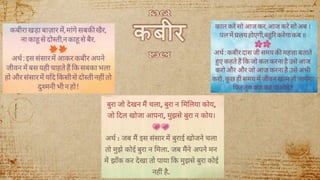 कबीर
कबीरा खड़ा बाज़ार में, मांगे सबकी खैर,
ना काहू से दोस्ती, न काहू से बैर.
अर्थ : इस संसार में आकर कबीर अपने
जीवन में बस यही चाहते हैं कि सबका भला
हो और संसार में यदि किसी से दोस्ती नहीं तो
दुश्मनी भी न हो !
काल करे सो आज कर, आज करे सो अब ।
पल में प्रलय होएगी, बहुरि करेगा कब ॥
अर्थ : कबीर दास जी समय की महत्ता बताते
हुए कहते हैं कि जो कल करना है उसे आज
करो और और जो आज करना है उसे अभी
करो , कुछ ही समय में जीवन ख़त्म हो जायेगा
फिर तुम क्या कर पाओगे !
बुरा जो देखन मैं चला, बुरा न मिलिया कोय,
जो दिल खोजा आपना, मुझसे बुरा न कोय।
अर्थ : जब मैं इस संसार में बुराई खोजने चला
तो मुझे कोई बुरा न मिला. जब मैंने अपने मन
में झाँक कर देखा तो पाया कि मुझसे बुरा कोई
नहीं है.